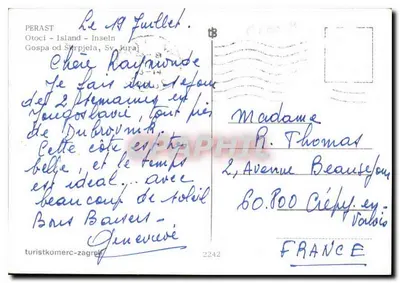 PERAST
Otoci - Island - Inseln
Gospa od Škrpjela, Sv. Juraj
Le 19 Juillet.
Chère Raymonde
Je fais un séjour
de 2 semaines en
Yougoslavie, tout près
de Dubrovnik
Cette côte est très
belle, et le temps
est idéal... avec
beaucoup de soleil
Bons Baisers -
Geneviève
Madame
R. Thomas
2, Avenue Beauséjour
60.800 Crépy-en-
Valois
FRANCE
turistkomerc-zagreb
2242